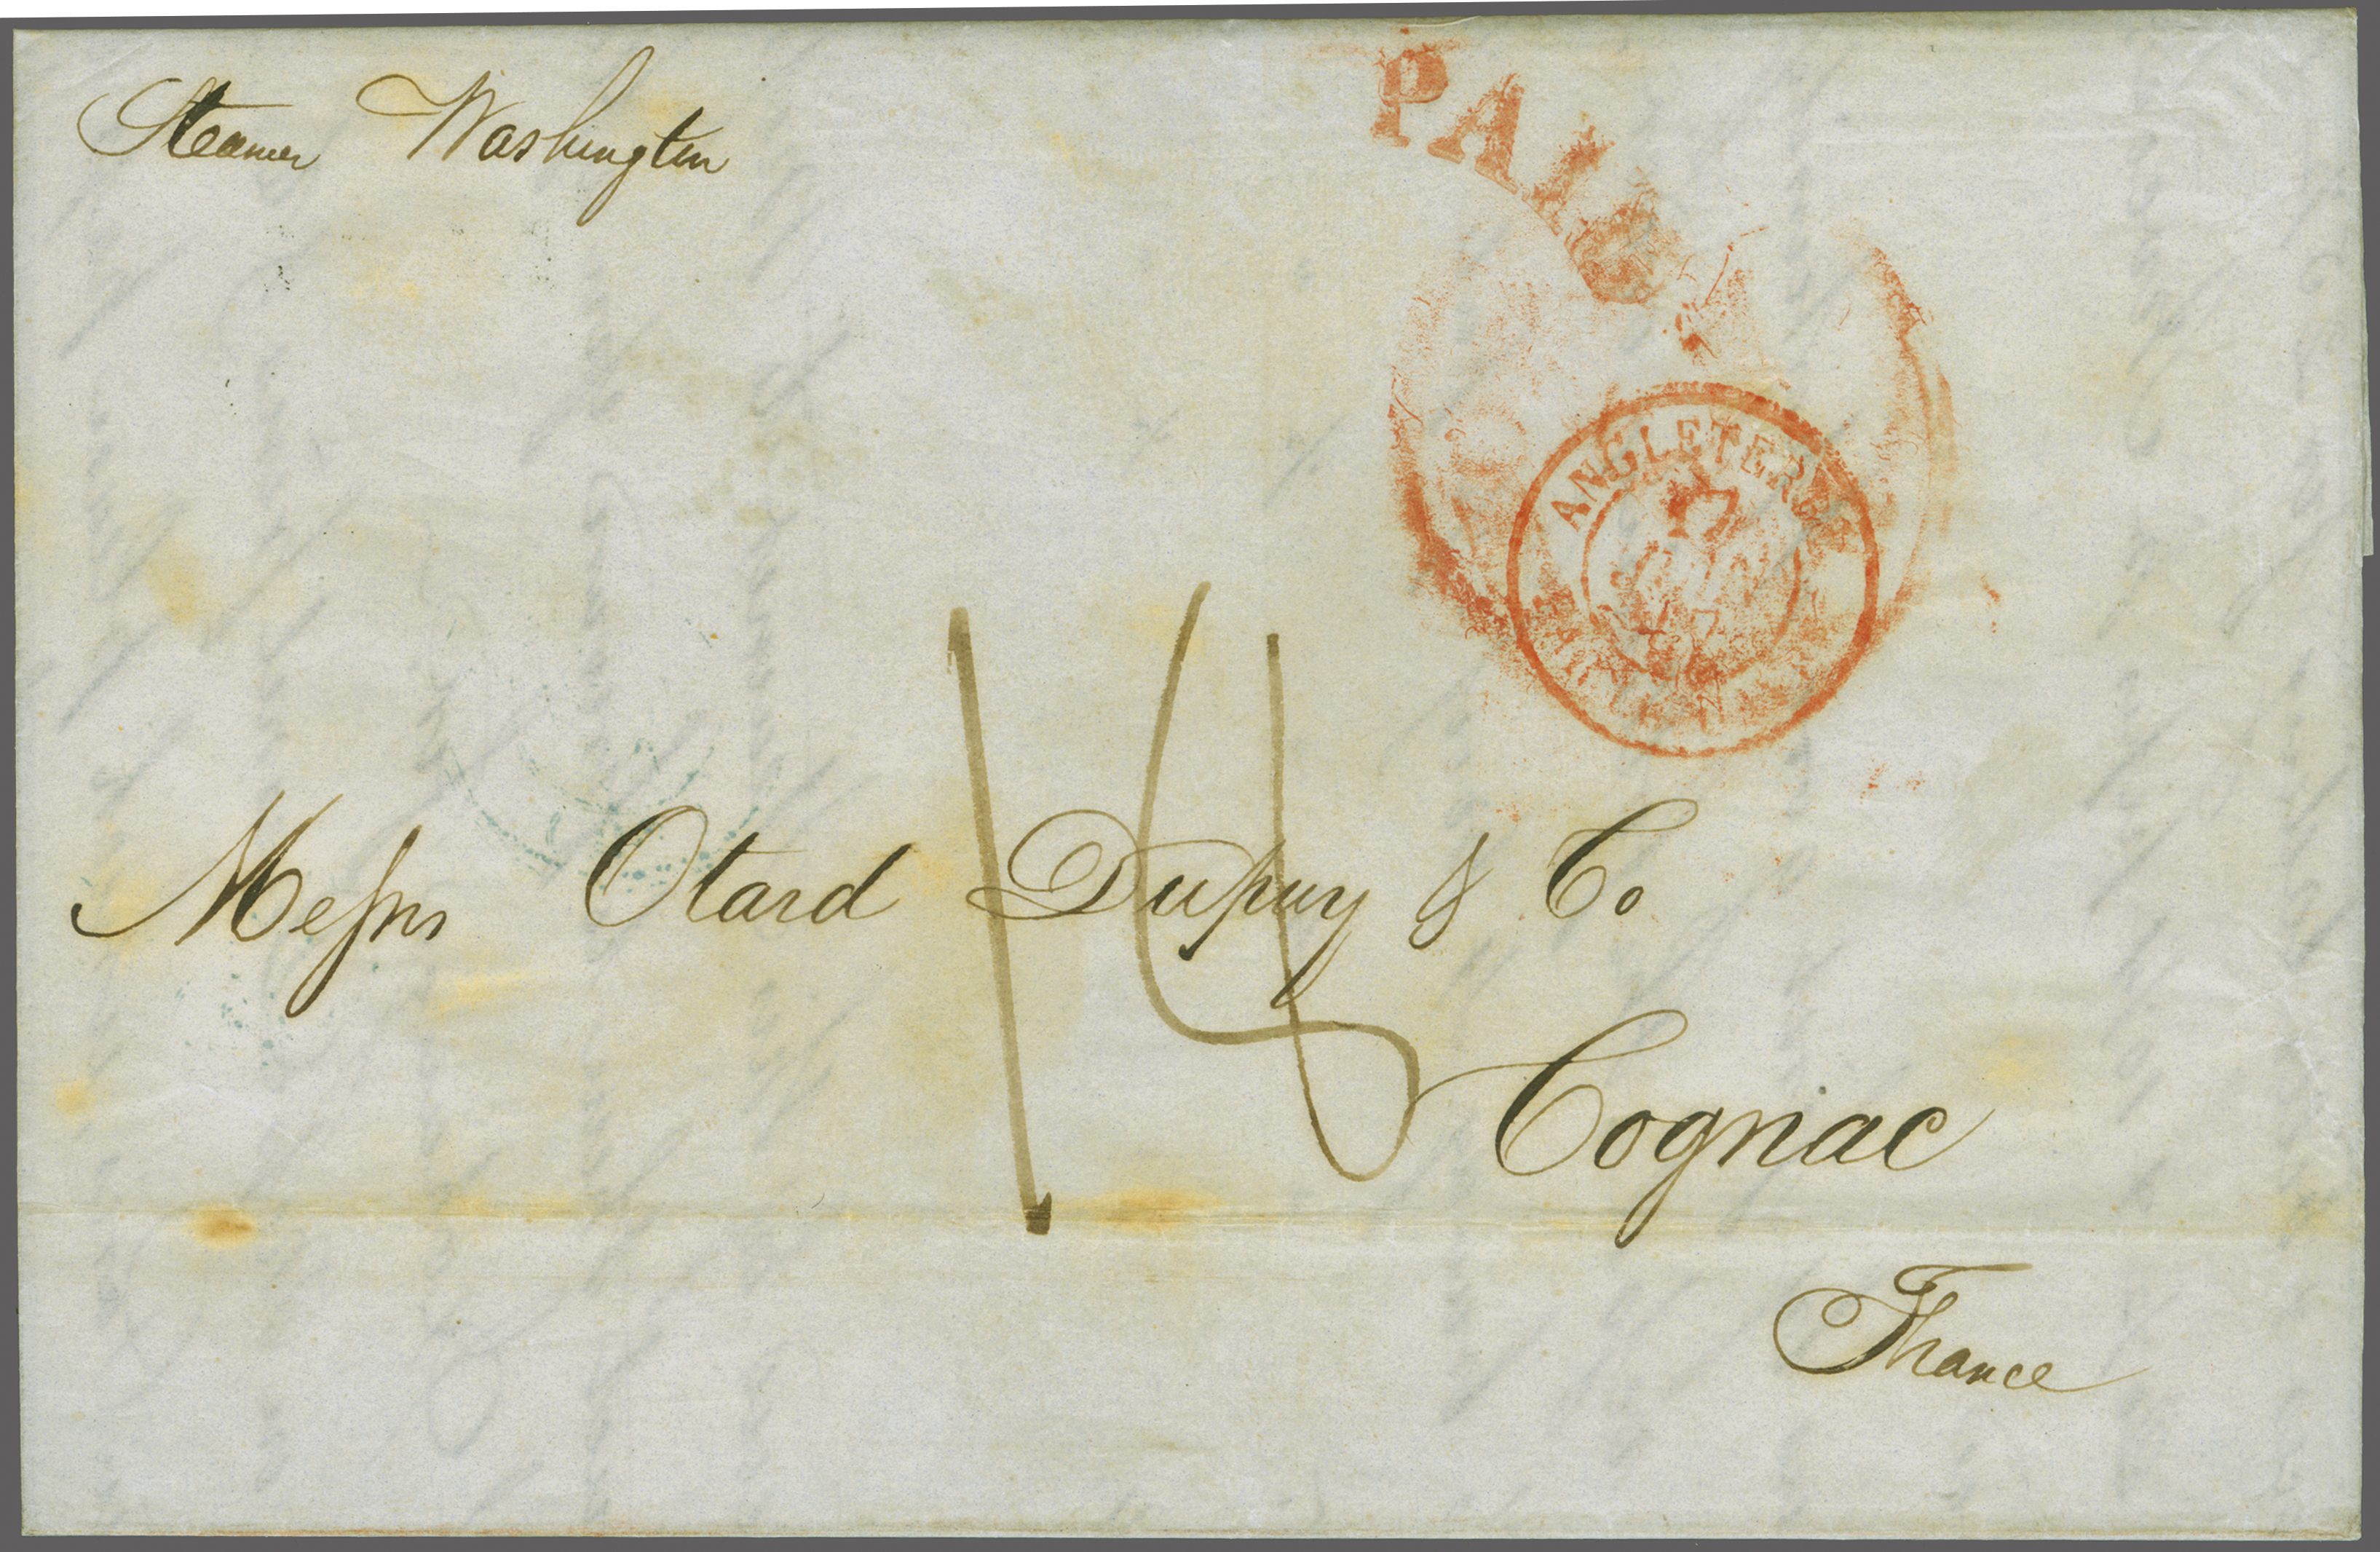 Steamer Washington
PAID
ANGLETERRE
17
Messrs Otard Dupuy & Co
14
Cognac
France